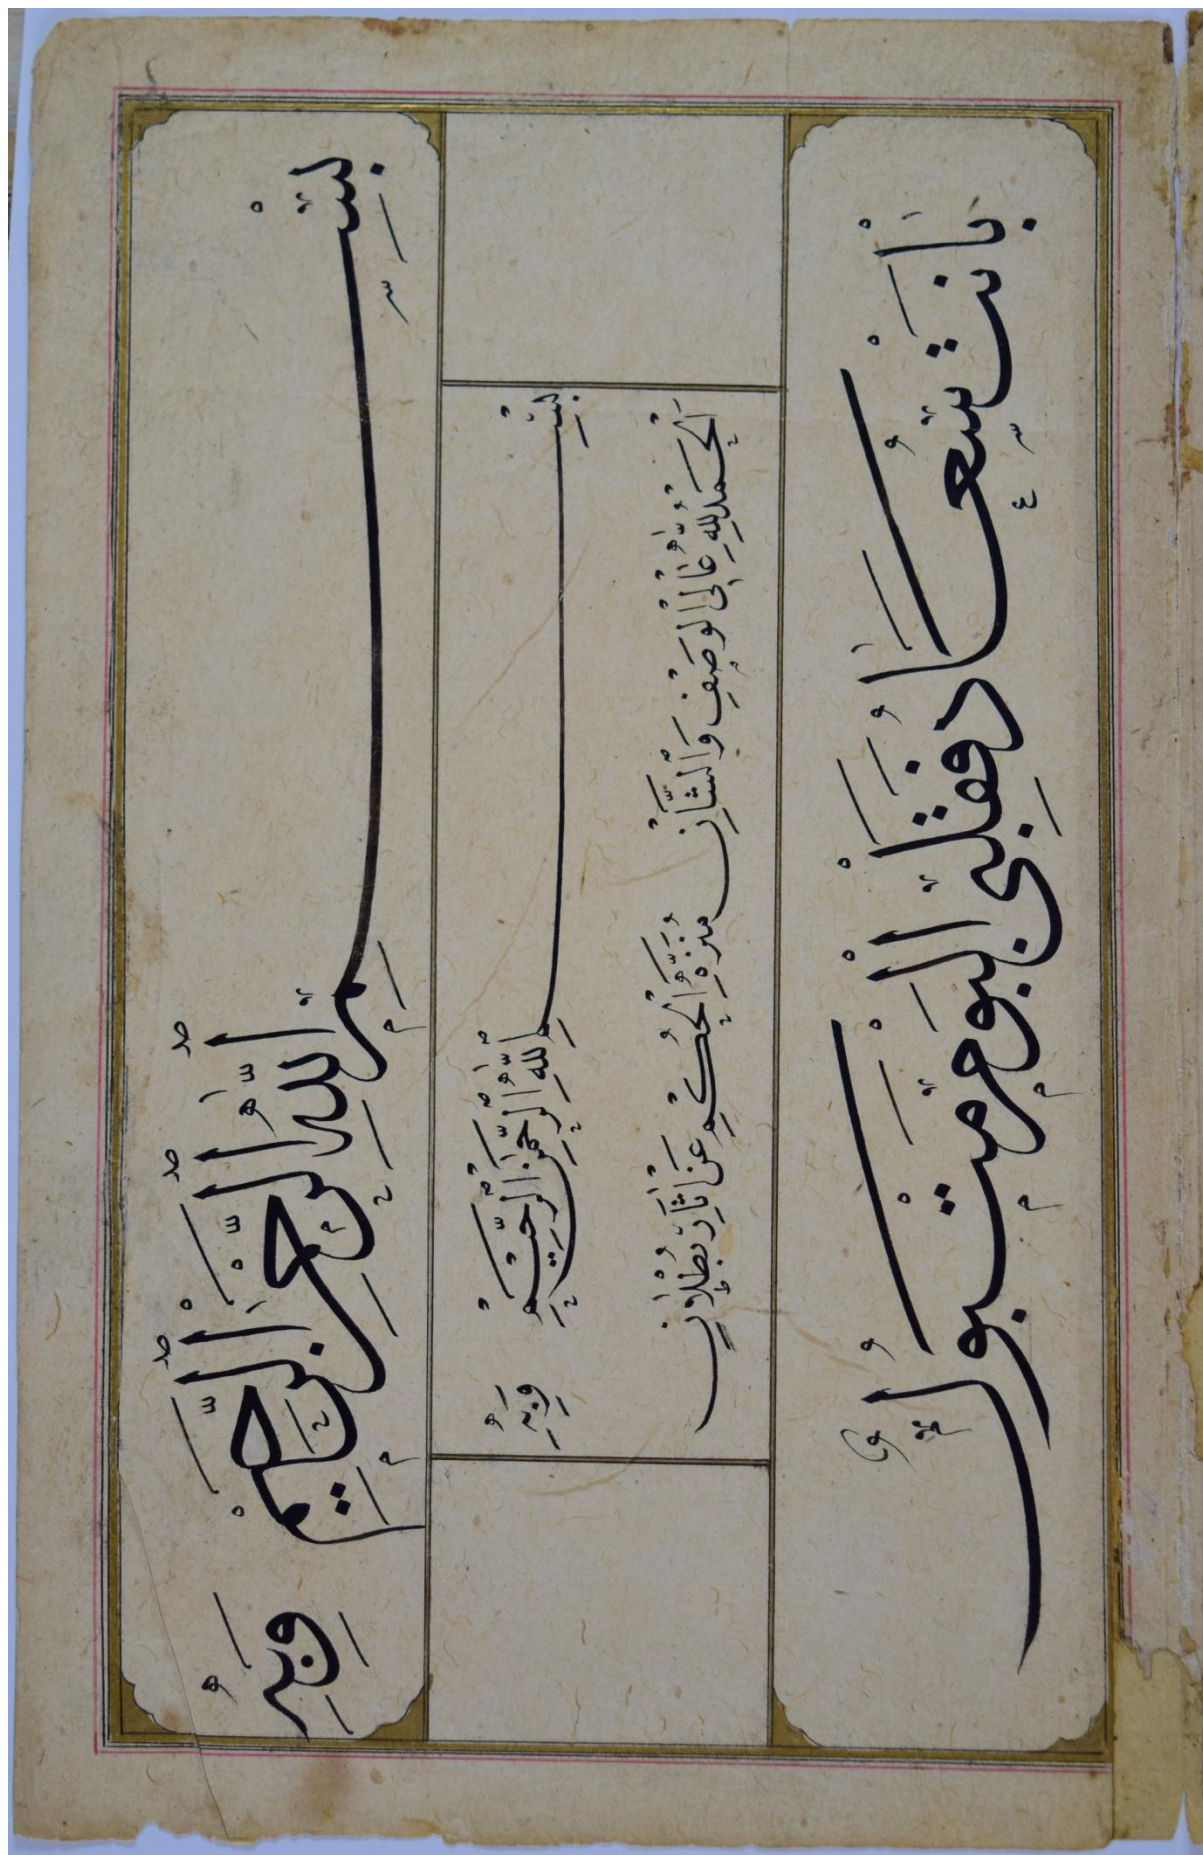 بِسْمِ اللّٰهِ الرَّحْمٰنِ الرَّحِيمْ وَبِهِ
بِسْمِ اللّٰهِ الرَّحْمٰنِ الرَّحِيمْ وَبِهِ
اَلْحَمْدُ لِلّٰهِ عَالِى الْوَصْفِ وَالشَّانْ مُنَزَّهِ الْحُكْمِ عَنْ اٰثَارِ بُطْلَانٍ
بَانَتْ سُعَادُ فَقَلْبِى الْيَوْمَ مَتْبُولُ